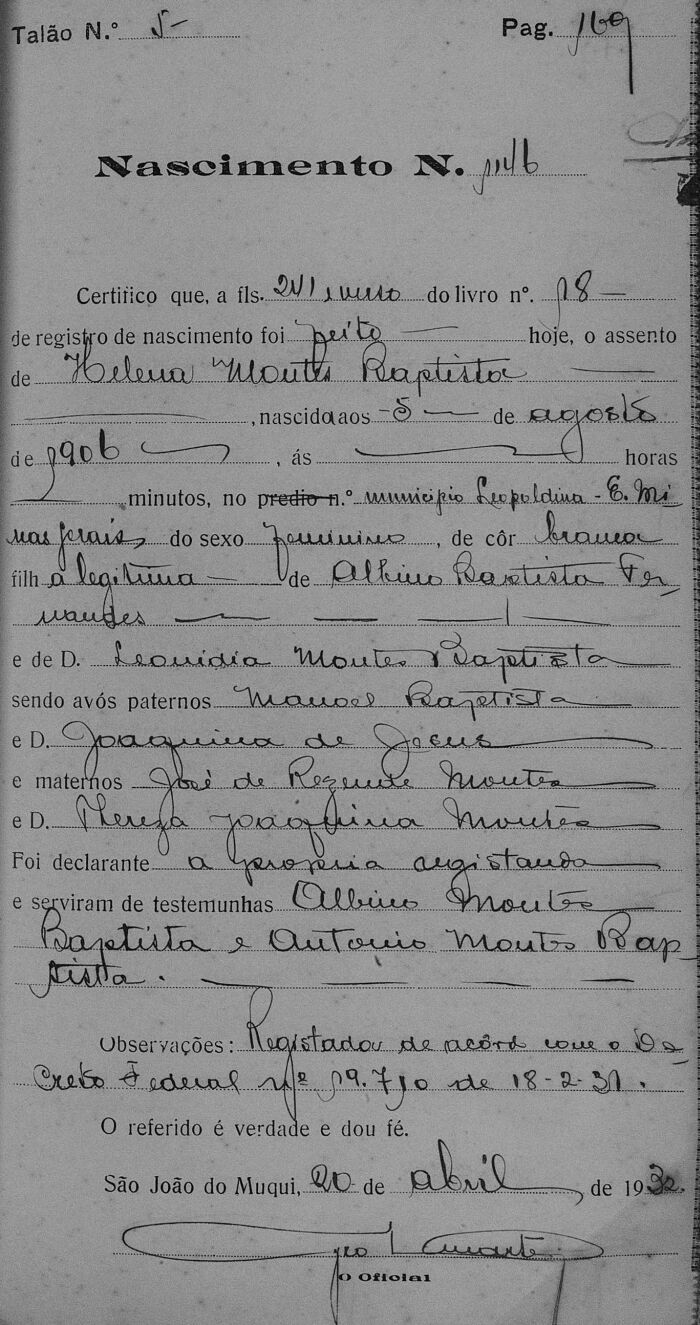 Talão N.º 5- Pag. 169
Nascimento N. 1146
Certifico que, a fls. 241 verso do livro nº. 18 -
de registro de nascimento foi feito — hoje, o assento
de Helena Montes Baptista —
—, nascida aos - 5 — de agosto
de 1906 —, ás — horas
— minutos, no predio n.º municipio Leopoldina - E. Mi
nas gerais, do sexo feminino, de côr branca
filha legitima — de Albino Baptista Fer-
nandes — — —
e de D. Leonidia Montes Baptista
sendo avós paternos Manoel Baptista
e D. Joaquina de Jesus
e maternos José de Rezende Montes
e D. Thereza Joaquina Montes
Foi declarante a propria registanda
e serviram de testemunhas Albino Montes
Baptista e Antonio Montes Bap-
tista. — — — —
Observações: Registada de acôrd com o De-
creto Federal nº 19.710 de 18-2-31.
O referido é verdade e dou fé.
São João do Muqui, 20 de abril de 1932.
O Oficial